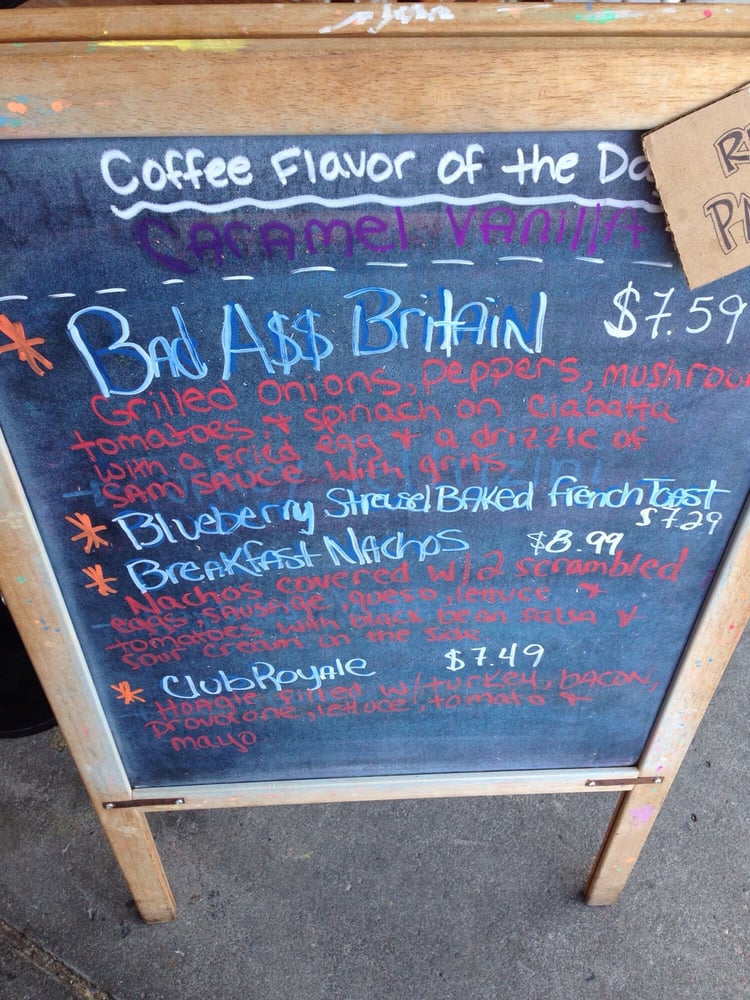 Coffee Flavor of the Da
Caramel Vanilla
* Bad A$$ Britain $7.59
Grilled onions, peppers, mushroo
tomatoes + spinach on Ciabatta
with a fried egg + a drizzle of
SAM SAUCE with grits
* Blueberry Streusel BAKED french Toast
$7.29
* BreakfAst NAchos $8.99
Nachos covered w/2 scrambled
eggs, sausage, queso, lettuce +
tomatoes with black bean salsa +
sour cream on the side
* Club RoyAle $7.49
Hoagie filled w/turkey, bacon,
provolone, lettuce, tomato +
mayo
R
PA